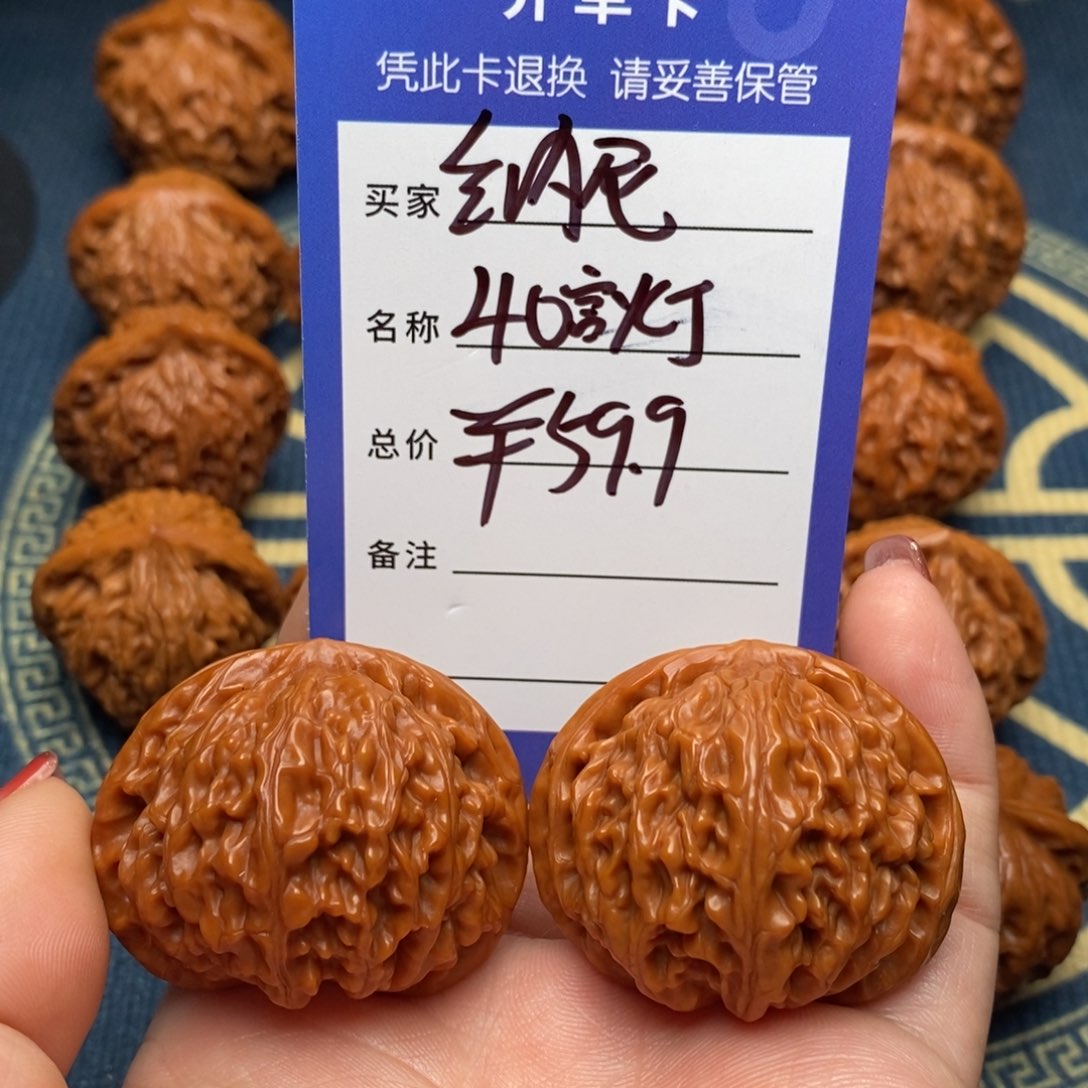 凭此卡退换 请妥善保管
买家 纳尼
名称 40宫灯
总价 ¥59.9
备注